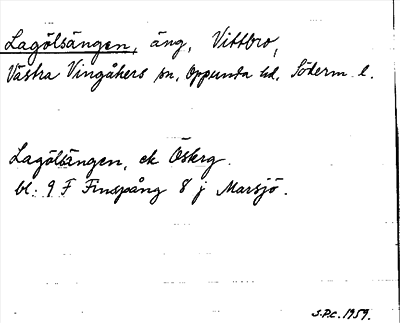 Lagölsängen, äng, Vittbro,
Västra Vingåkers sn, Oppunda hd, Söderm. l.
Lagölsängen, ek Österg.
bl. 9 F Finspång 8 j Marsjö.
S.P.C. 1959.